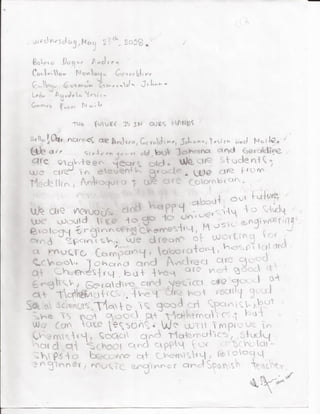 wednesday, May 27th, 2008.
Botero Duque Andrea
Castrillon Montoya Geraldine
Gutierrez Esmeralda Johana
Yesica
Maile
THE FUTURE IS IN OURS HANDS
Hello! Our names are Andrea, Geraldine, Johana, Yesica and Maile,
we are old, but Johana and Geraldine
are eighteen years old. We are students,
we are in eleventh grade. We are from
Medellin, Antioquia, we are colombian.
We are nervous and happy about our future,
we would like to go to university to study
Biology Enginnering, Chemestry, Music enginnering,
and Spanish; we dream of working for
a music Company, laboratory, hospital and
school. Johana and Andrea are good
at Chemestry but they are not good at
English, Geraldine and yesica are good at
at Mathematics, they are not really good
Social Sciences, Maile is good at Spanish, but
she is not good at Mathematics, but
We Can take lessons. We will Improve in
Chemistry, social and Matematics, study
hard at school and apply for a scholar-
ships to become at Chemistry, Biology
enginner, music enginner and Spanish Teacher.